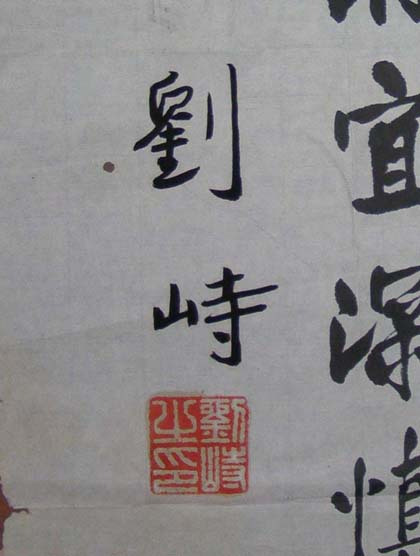 宜深慎
劉峙
劉峙
之印